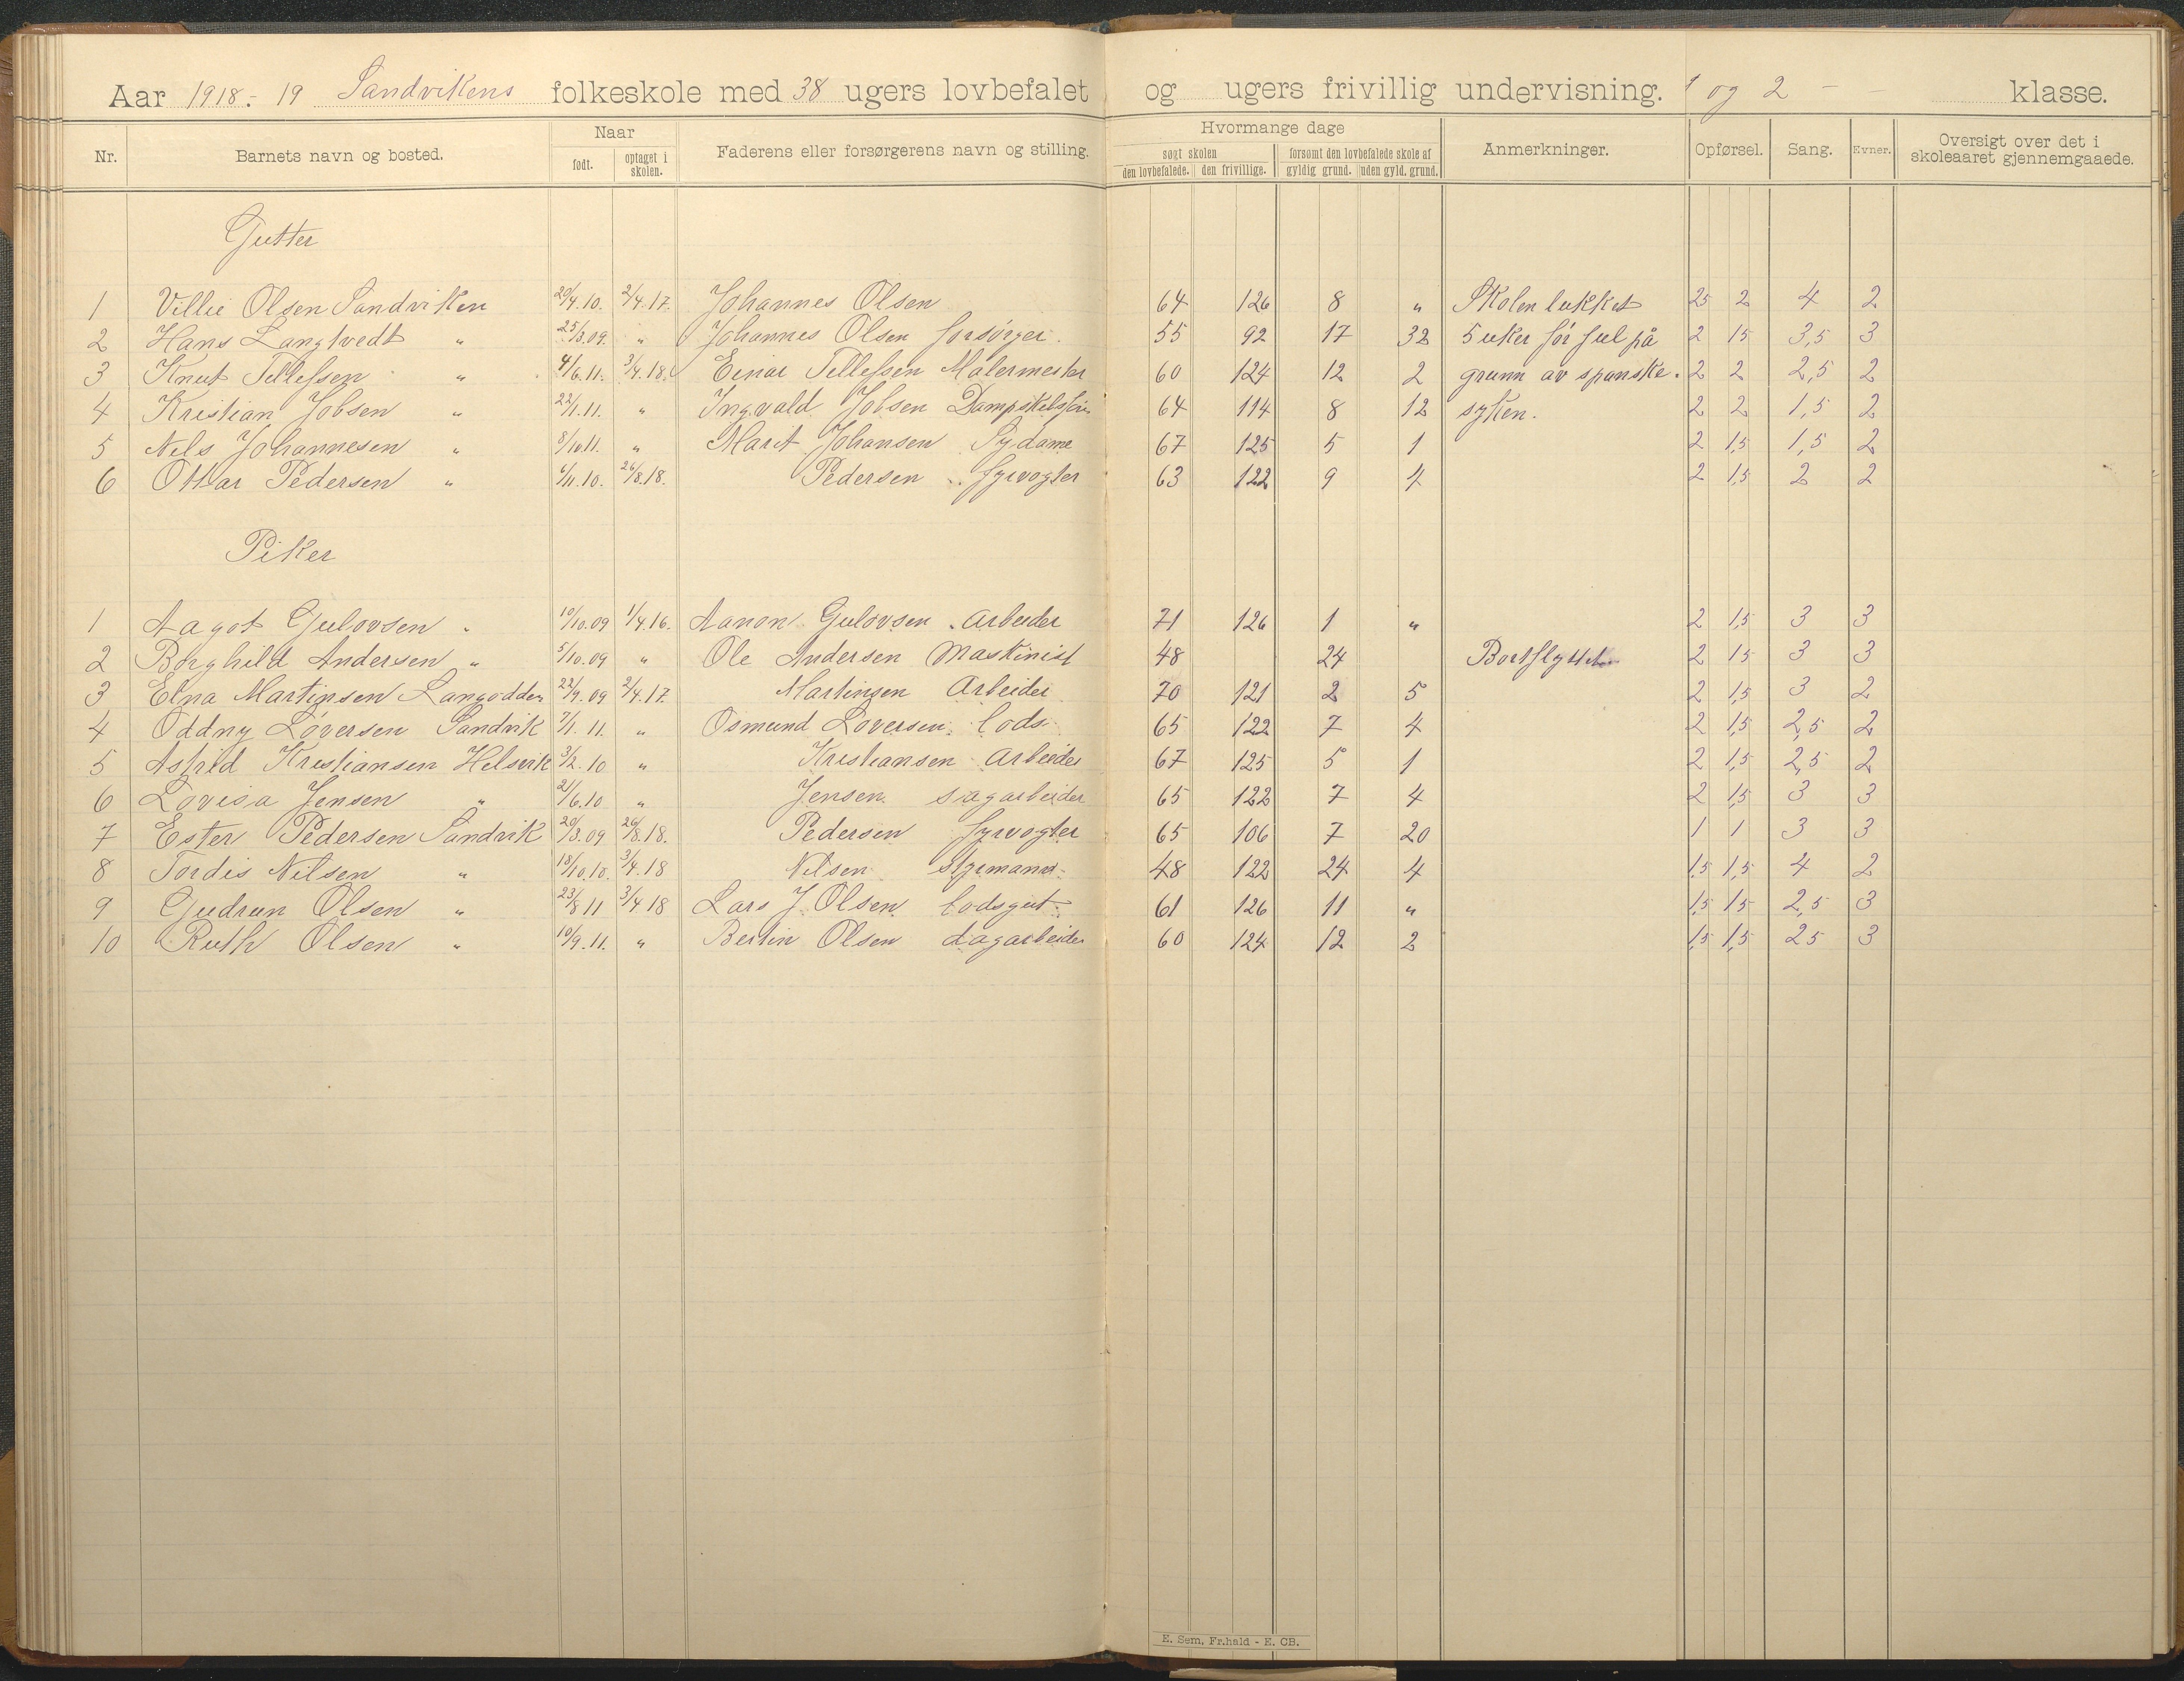 Aar 1918.- 19 Sandvikens folkeskole med 38 ugers lovbefalet og ugers frivillig undervisning. 1 og 2 - - klasse.
Nr. Barnets navn og bosted. Naar født. optaget i skolen. Faderens eller forsørgerens navn og stilling. Hvormange dage søgt skolen den lovbefalede. den frivillige. forsømt den lovbefalede skole af gyldig grund. uden gyld. grund. Anmerkninger. Opførsel. Sang. Evner. Oversigt over det i skoleaaret gjennemgaaede.
Gutter
1 Villie Olsen Sandviken 20/4.10. 2/4.17. Johannes Olsen 64 126 8 „ Skolen lukket 25 2 4 2
2 Hans Langtvedt „ 25/3.09. „ Johannes Olsen forsörger. 55 92 17 32 5 uker för jul på 2 15 3,5 3
3 Knut Tellefsen „ 4/6.11. 3/4.18. Einar Tellefsen Malermester 60 124 12 2 grunn av spanske. 2 2 2,5 2
4 Kristian Jobsen „ 22/1.11. „ Ingvald Jobsen 64 114 8 12 syken. 2 2 1,5 2
5 Nels Johannesen „ 8/10.11. „ Marit Johansen Sydame 67 125 5 1 2 1,5 1,5 2
6 Ottar Pedersen „ 6/11.10. 26/8.18. Pedersen fyrvogter 63 122 9 4 2 1,5 2 2
Piker
1 Aagot Gulovsen „ 10/10.09 1/4.16. Aanon Gulovsen. Arbeider 71 126 1 „ 2 1,5 3 3
2 Borghild Andersen „ 5/10.09 „ Ole Andersen Maskinist 48 24 Bortflyttet 2 15 3 3
3 Elna Martinsen Langodden 22/9.09 2/4.17. Martinsen Arbeider 70 121 2 5 2 1,5 3 2
4 Oddny Löversen Sandvik 7/1.11. „ Osmund Loversen. Lods. 65 122 7 4 2 1,5 2,5 2
5 Astrid Kristiansen Helsvik 3/2.10 „ Kristiansen Arbeider 67 125 5 1 2 1,5 2,5 2
6 Lovisa Jensen „ 21/6.10 „ Jensen sagarbeider 65 122 7 4 2 1,5 3 3
7 Ester Pedersen Sandvik 20/3.09 26/8.18. Pedersen fyrvogter 65 106 7 20 1 1 3 3
8 Tordis Nilsen „ 18/10.10. 3/4.18 Nilsen Styrmand 48 122 24 4 1,5 1,5 4 2
9 Gudrun Olsen „ 23/8 11 3/4 18 Lars J. Olsen Lodsgut. 61 126 11 „ 1,5 15 2,5 3
10 Ruth Olsen „ 10/9.11. „ Bertin Olsen dagarbeider 60 124 12 2 1,5 1,5 25 3
E. Sem, Fr.hald - E. CB.